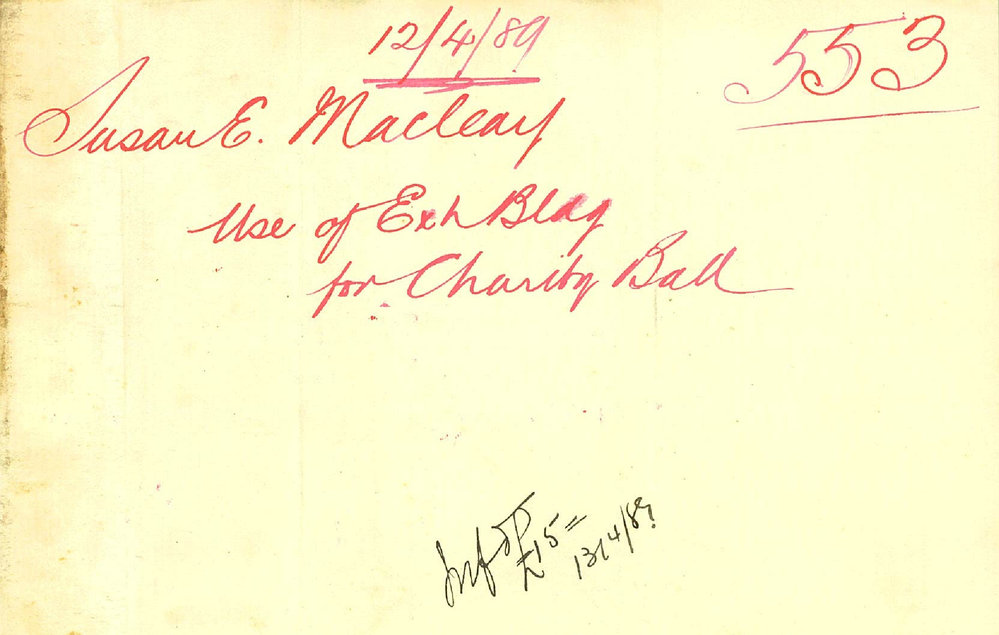 12/4/89
553
Susan E. Macleay
Use of Exh Bldg
for Charity Ball
Inf
£15=
13/4/89